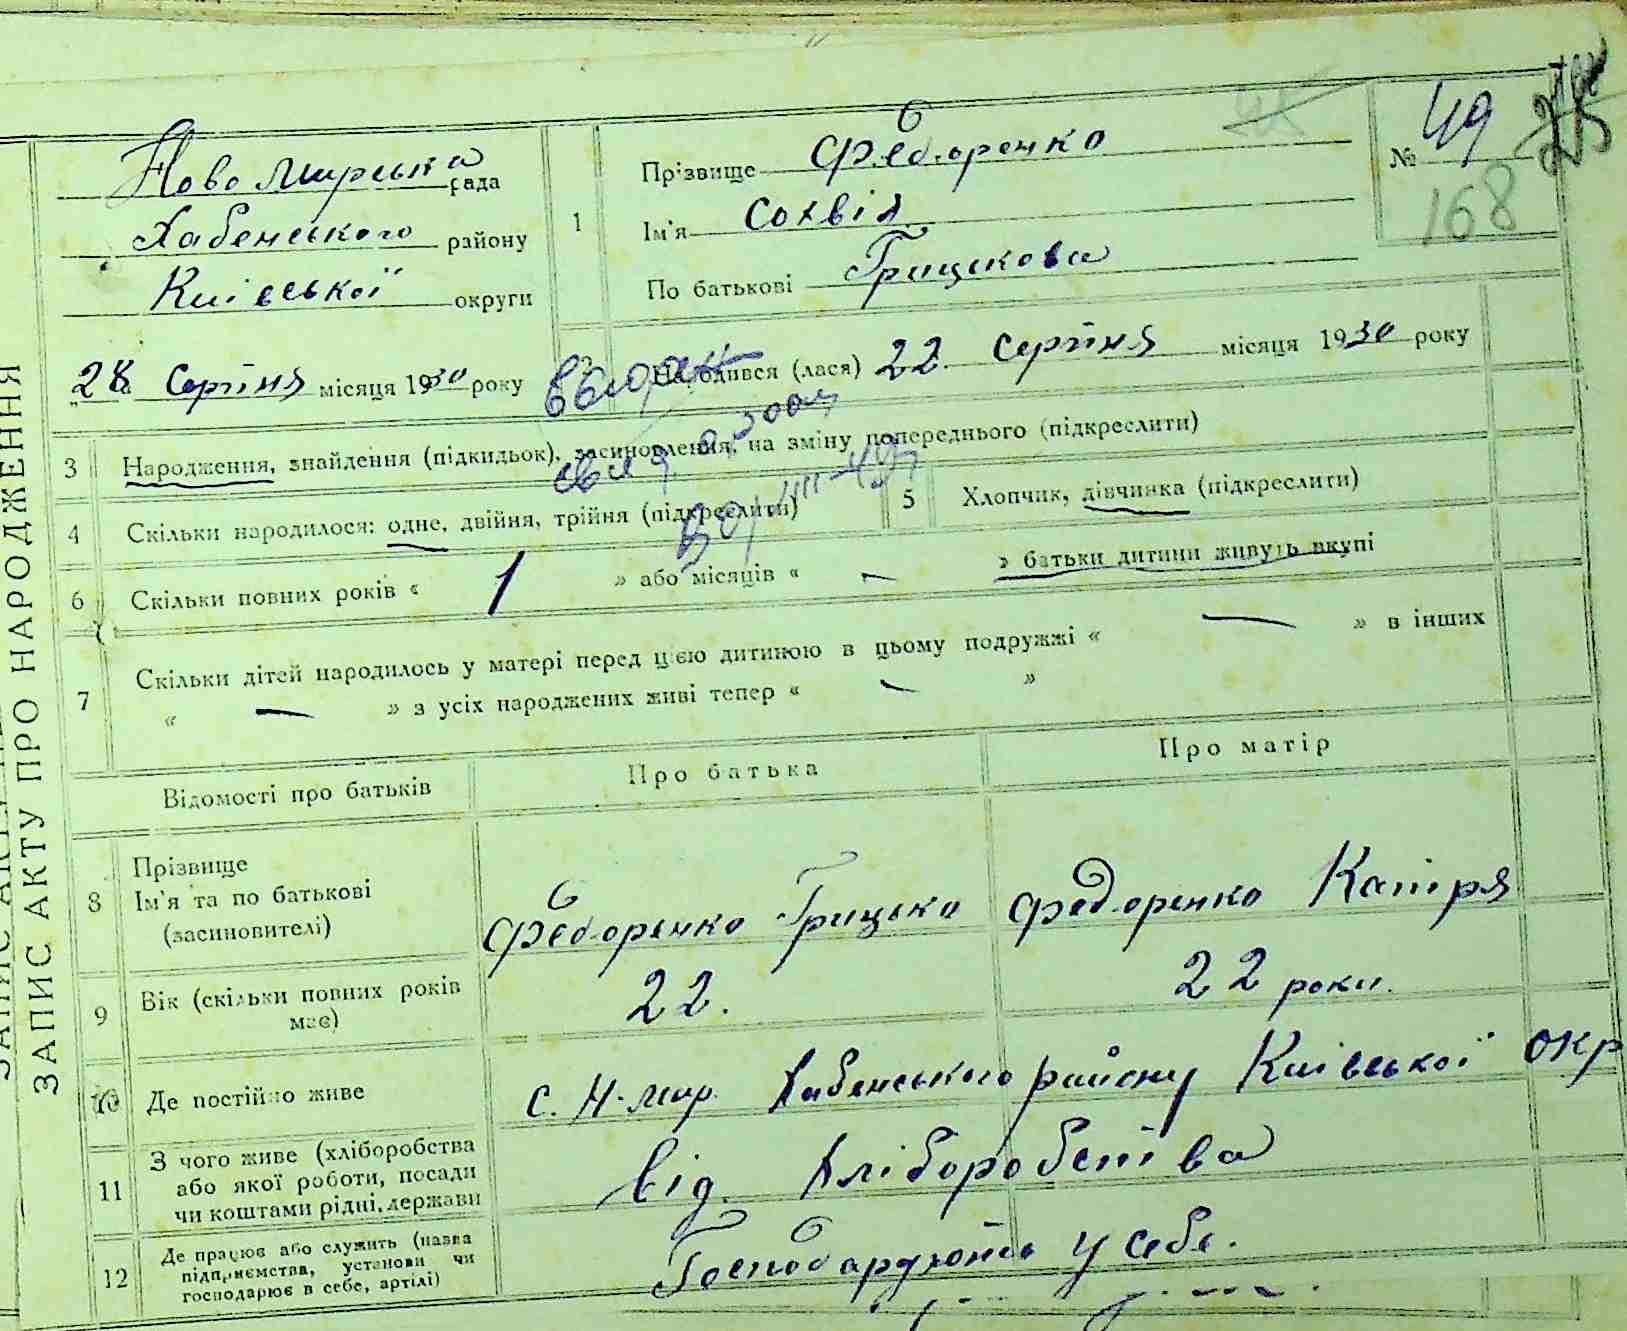 ЗАПИС АКТУ ПРО НАРОДЖЕННЯ
Ново Мирська рада
Хабенського району
Київської округи
28 Серпня місяця 1930 року
1
Прізвище Федоренко
Ім'я Сохвія
По батькові Грицькова
№ 49
168
Народився (лася) 22 Серпня місяця 1930 року
3 Народження, знайдення (підкидьок), засиновлення, на зміну попереднього (підкреслити)
4 Скільки народилося: одне, двійня, трійня (підкреслити)
5 Хлопчик, дівчинка (підкреслити)
6 Скільки повних років « 1 » або місяців « — » батьки дитини живуть вкупі
7 Скільки дітей народилось у матері перед цією дитиною в цьому подружжі « — » в інших
« — » з усіх народжених живі тепер « — »
Відомості про батьків
Про батька
Про матір
8 Прізвище
Ім'я та по батькові
(засиновителі)
Федоренко Грицько
Федоренко Катря
9 Вік (скільки повних років
має)
22.
22 роки.
10 Де постійно живе
с. Н-Мир. Хабенського району Київської окр
11 З чого живе (хліборобства
або якої роботи, посади
чи коштами рідні, держави
від Хліборобства
12 Де працює або служить (назва
підприємства, установи чи
господарює в себе, артілі)
Господарюють у себе.